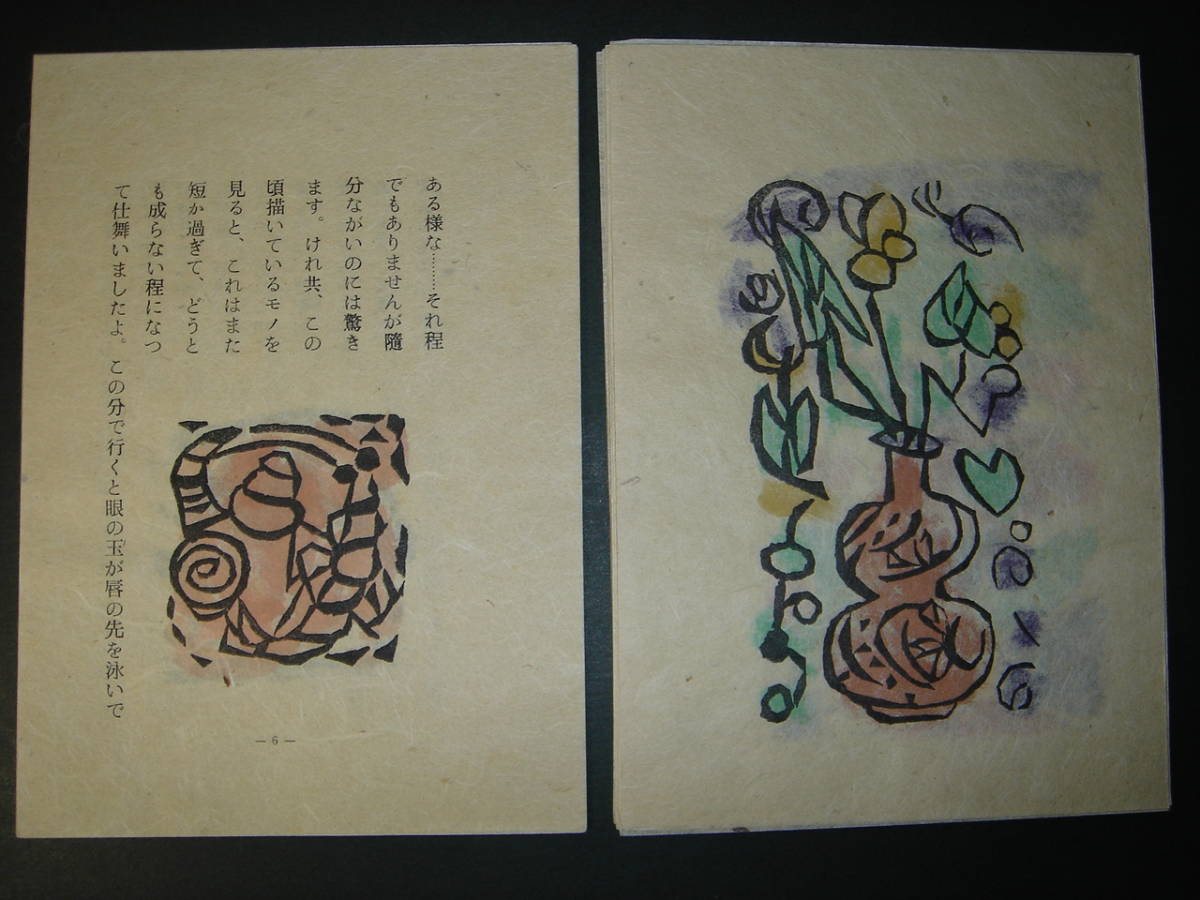 ある様な………それ程
でもありませんが隨
分ながいのには驚き
ます。けれ共、この
頃描いているモノを
見ると、これはまた
短か過ぎて、どうと
も成らない程になつ
て仕舞いましたよ。この分で行くと眼の玉が唇の先を泳いで
— 6 —